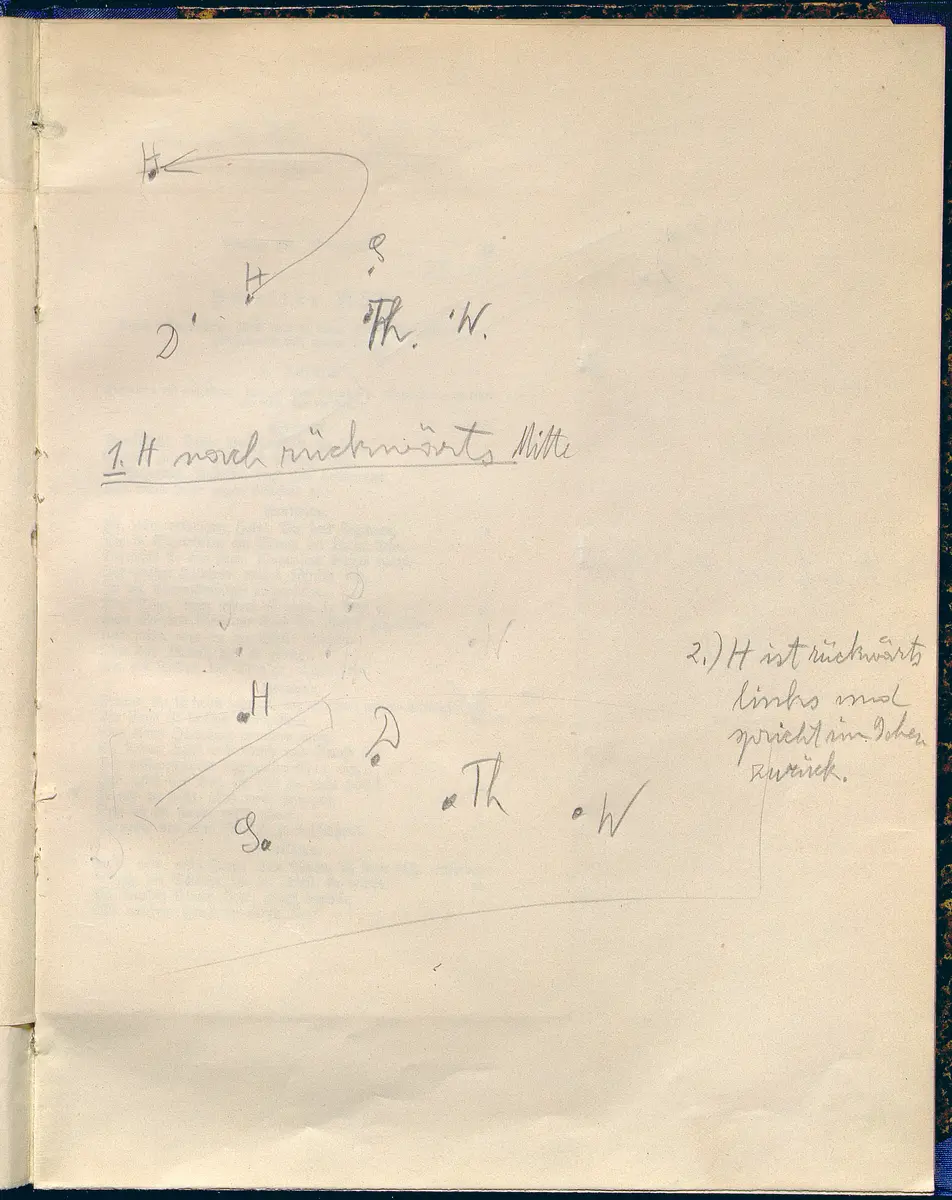 H
S
H
D
Th. W.
1. H nach rückwärts Mitte
D
S
W
Th
2.) H ist rückwärts
links und
spricht im Gehen
zurück.
H
D
Th
W
S